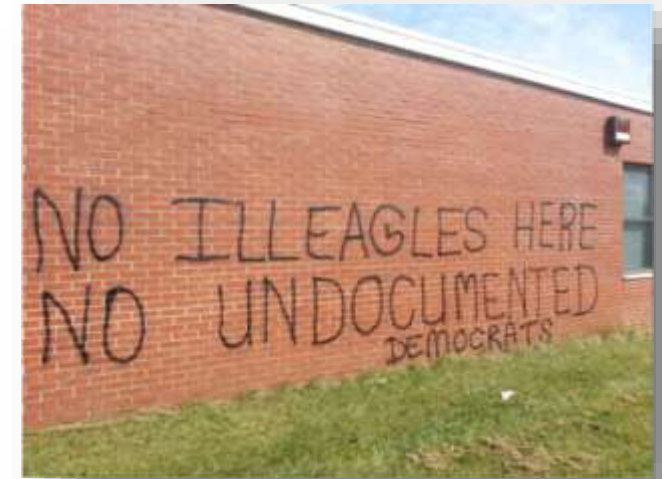 NO ILLEAGLES HERE
NO UNDOCUMENTED
DEMOCRATS